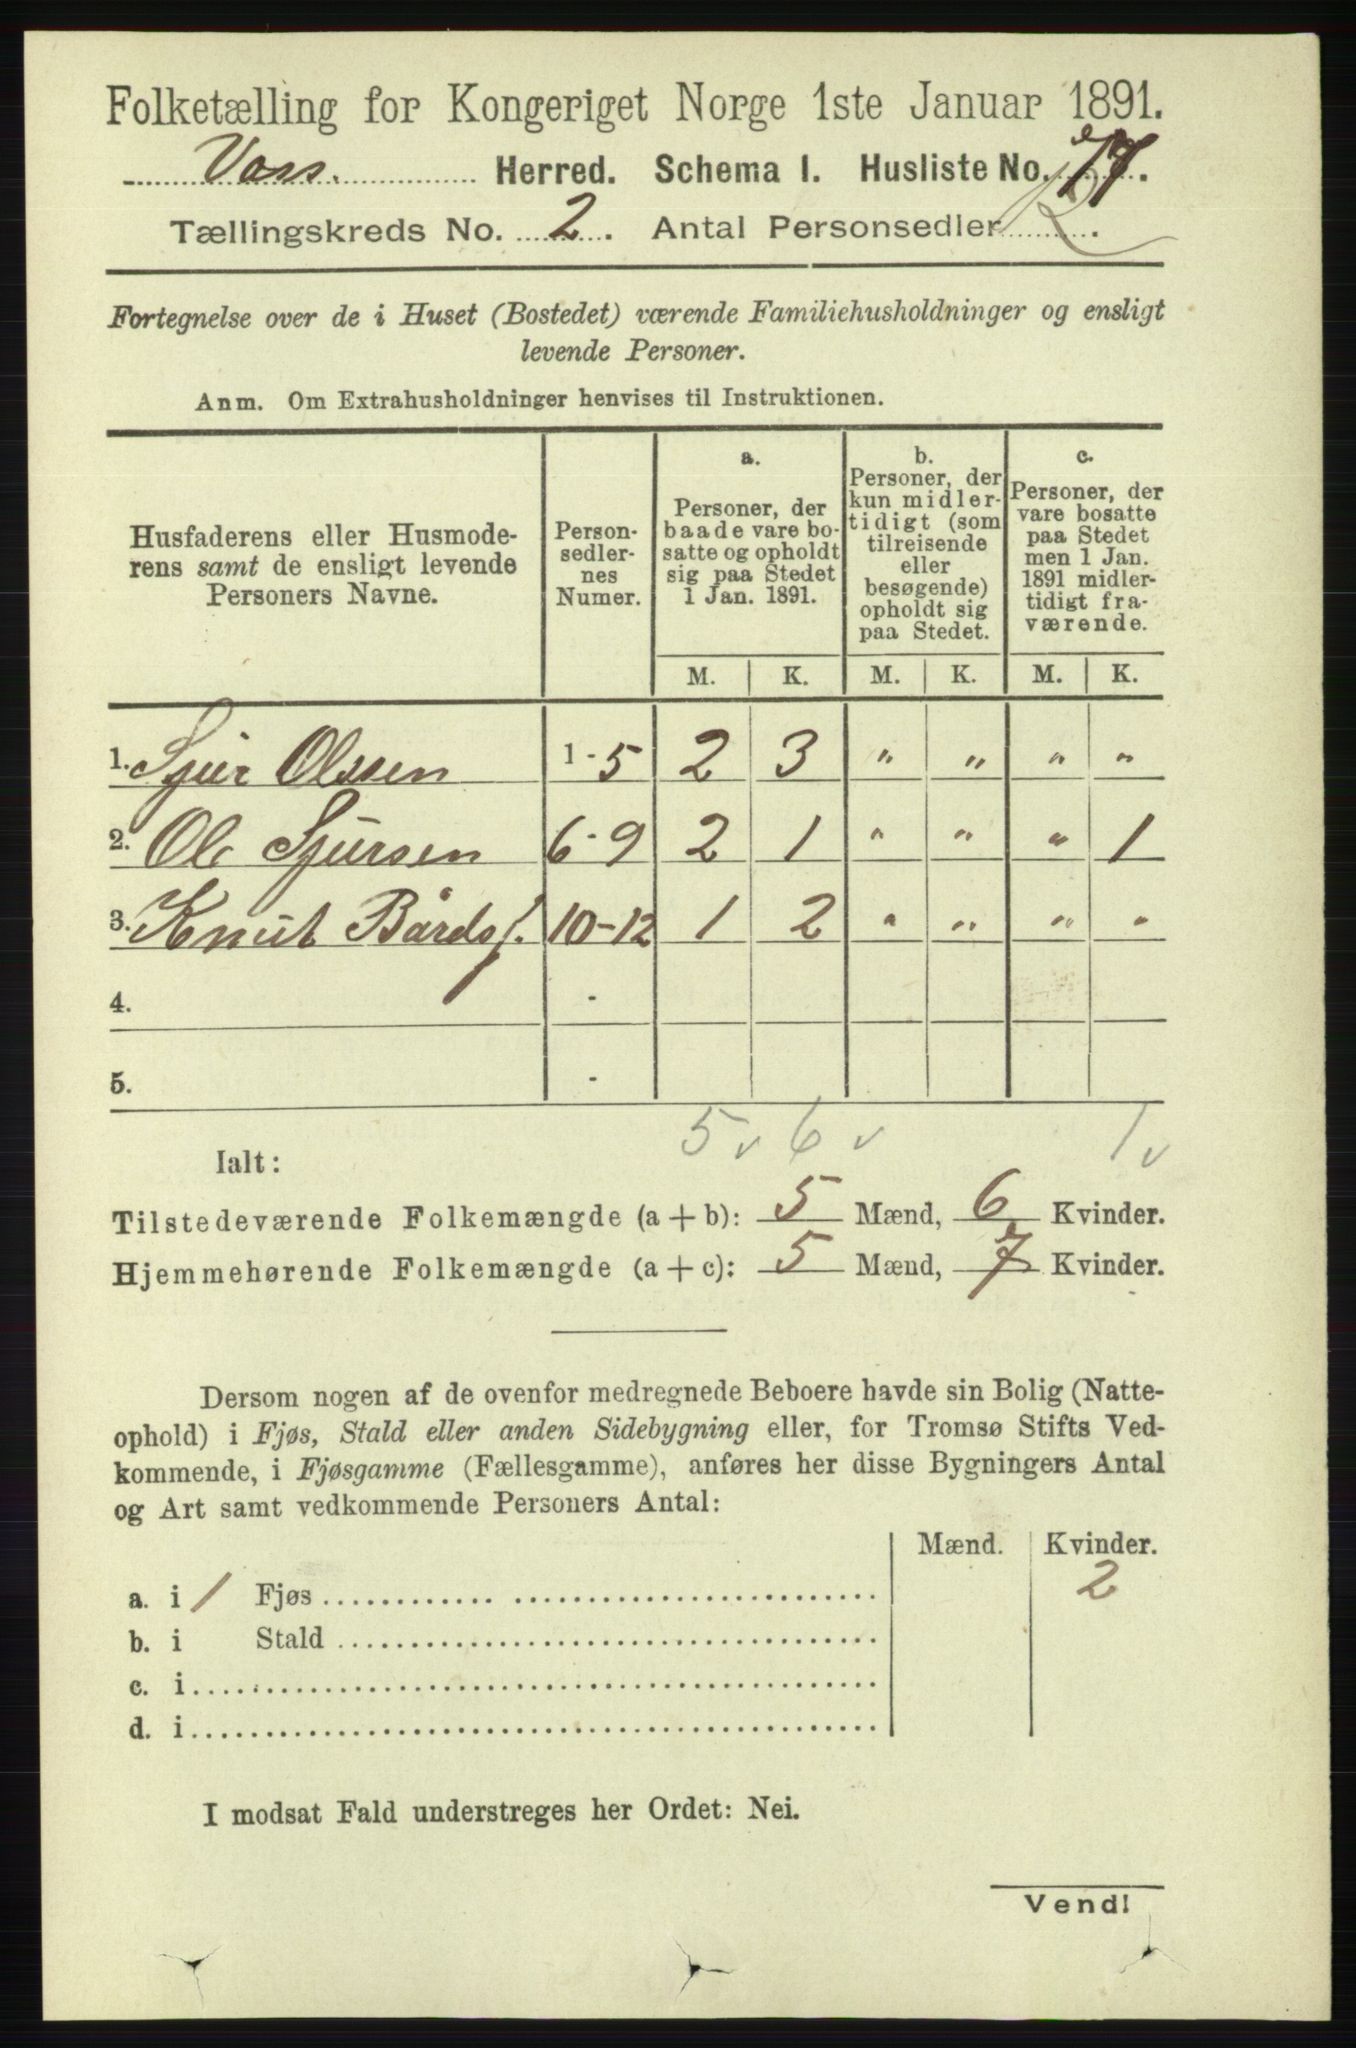 Folketælling for Kongeriget Norge 1ste Januar 1891.
Voss. Herred. Schema 1. Husliste No. 77.
Tællingskreds No. 2. Antal Personsedler 12.
Fortegnelse over de i Huset (Bostedet) værende Familiehusholdninger og ensligt
levende Personer.
Anm. Om Extrahusholdninger henvises til Instruktionen.
Husfaderens eller Husmode-
rens samt de ensligt levende
Personers Navne.
Person-
sedler-
nes
Numer.
a.
Personer, der
baade vare bo-
satte og opholdt
sig paa Stedet
1 Jan. 1891.
b.
Personer, der
kun midler-
tidigt (som
tilreisende
eller
besøgende)
opholdt sig
paa Stedet.
c.
Personer, der
vare bosatte
paa Stedet
men 1 Jan.
1891 midler-
tidigt fra-
værende.
M. K. M. K. M. K.
1. Sjur Olssen 1-5 2 3 " " " "
2. Ole Sjursen 6-9 2 1 " " " 1
3. Knut Bårds s. 10-12 1 2 " " " "
4. -
5. -
5 v 6 v 1 v
Ialt:
Tilstedeværende Folkemængde (a + b): 5 Mænd, 6 Kvinder.
Hjemmehørende Folkemængde (a + c): 5 Mænd, 7 Kvinder.
Dersom nogen af de ovenfor medregnede Beboere havde sin Bolig (Natte-
ophold) i Fjøs, Stald eller anden Sidebygning eller, for Tromsø Stifts Ved-
kommende, i Fjøsgamme (Fællesgamme), anføres her disse Bygningers Antal
og Art samt vedkommende Personers Antal:
Mænd. Kvinder.
a. i 1 Fjøs 2
b. i Stald
c. i
d. i
I modsat Fald understreges her Ordet: Nei.
Vend!